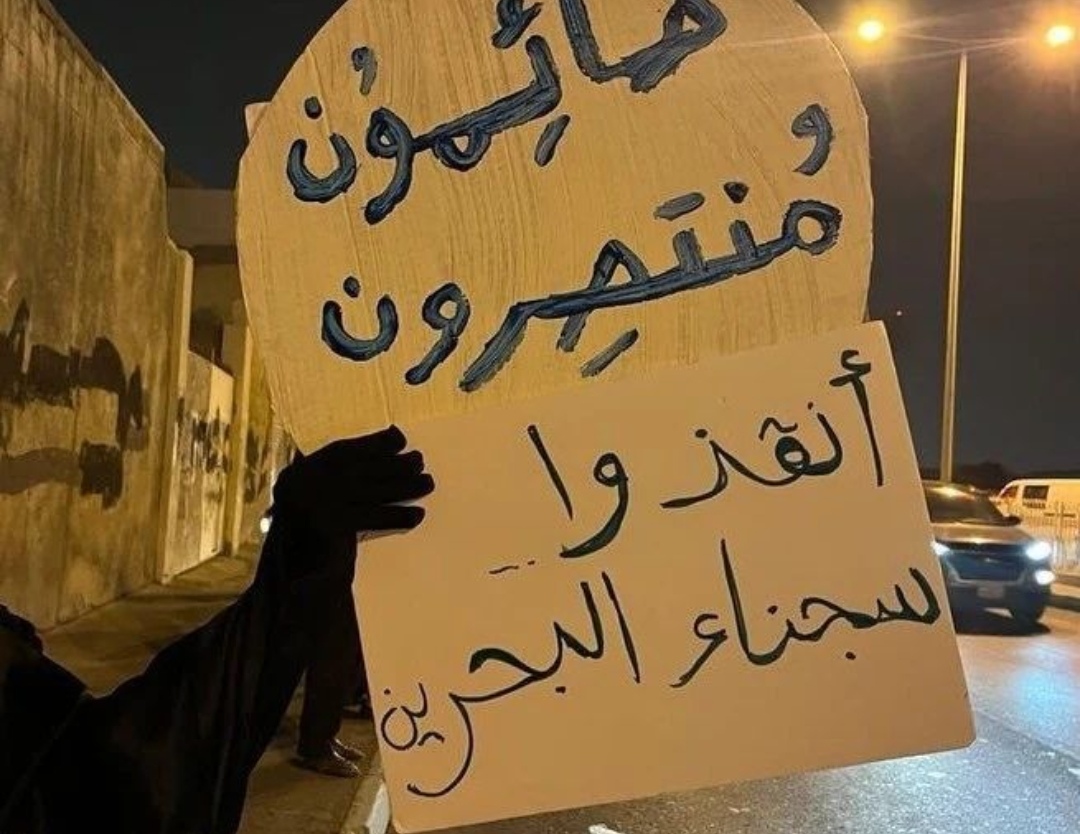 صائِمُون
مُنتصِرون
أنقذوا
سجناء البحرين